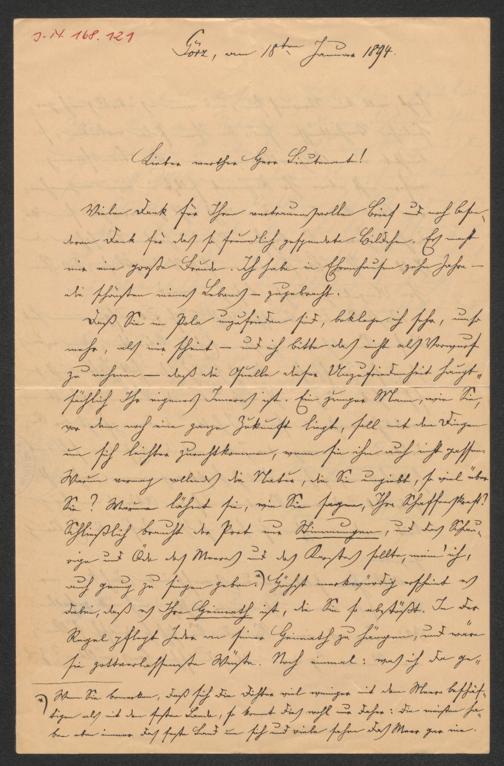 J. N. 168.121
Görz, am 18ten Januar 1894.
Lieber werther Herr Lieutenant!
Vielen Dank für Ihren vertrauensvollen Brief und noch beson-
dern Dank für das so freundlich gespendete Bildchen. Es macht
mir eine große Freude. Ich habe in Ehrenhausen zehn Jahre –
die schönsten meines Lebens – zugebracht.
Daß Sie in Pola unzufrieden sind, beklage ich sehr, umso
mehr, als mir scheint – und ich bitte das nicht als Vorwurf
zu nehmen – daß die Quelle dieser Unzufriedenheit haupt-
sächlich Ihr eigenes Inneres ist. Ein junger Mann, wie Sie,
vor dem noch eine ganze Zukunft liegt, soll mit den Dingen
um sich leichter zurechtkommen, wenn sie ihm auch nicht passen.
Warum vermag vollends die Natur, die Sie umgiebt, so viel über
Sie? Warum lähmt sie, wie Sie sagen, Ihre Schaffenskraft?
Schließlich braucht der Poet nur Stimmungen, und das Schau-
rige und Öde des Meeres und des Karstes sollte, mein' ich,
auch genug zu singen geben.*) Höchst merkwürdig erscheint es
dabei, daß es Ihre Heimath ist, die Sie so abstößt. In der
Regel pflegt Jeder an seiner Heimath zu hängen, und wäre
sie gottverlassenste Wüste. Noch einmal: was ich da ge-
*) Wenn Sie bemerken, daß sich die Dichter viel weniger mit dem Meere beschäf-
tigen als mit dem festen Lande, so kommt dies wohl nur daher: die meisten ha-
ben eben immer das feste Land um sich und viele sehen das Meer gar nie.